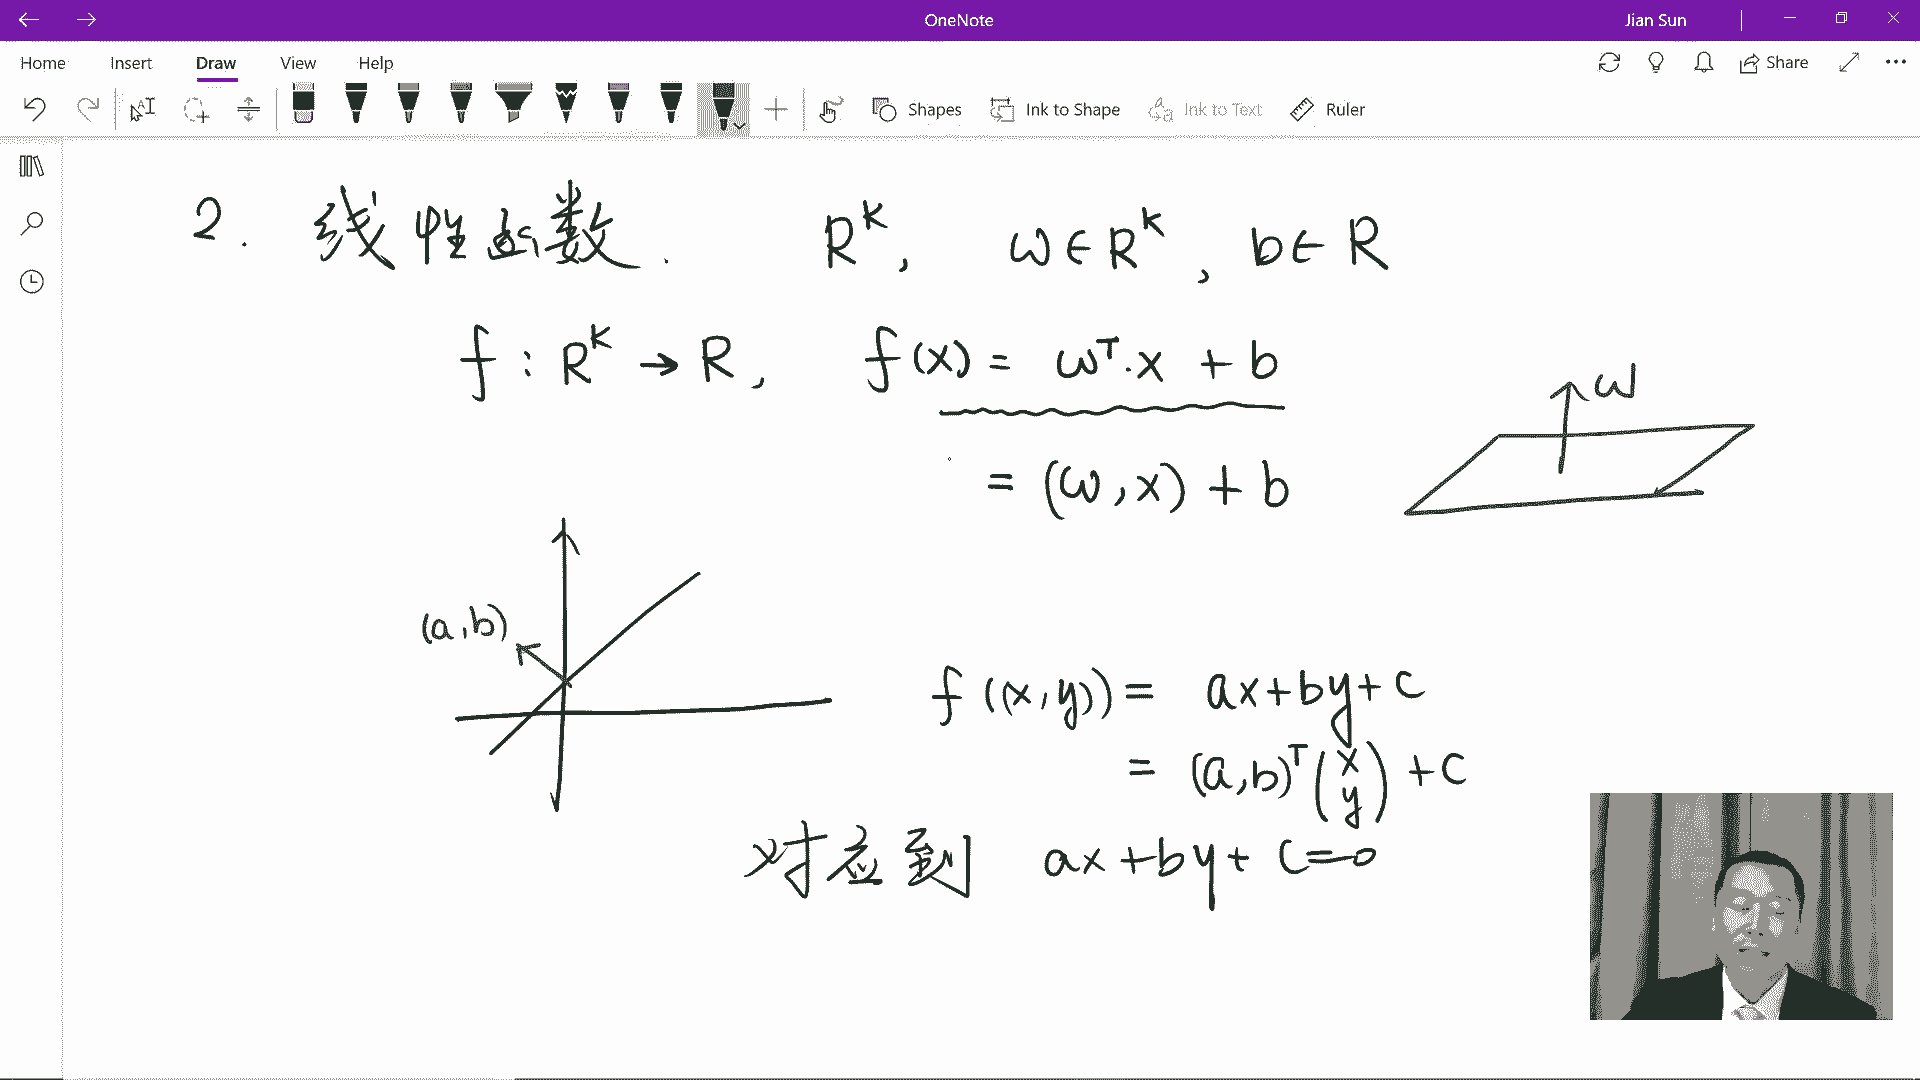 OneNote
Jian Sun
Home Insert Draw View Help
Share
Shapes Ink to Shape Ink to Text Ruler
2. 线性函数. R^K, ω∈R^K, b∈R
f: R^K → R, f(x) = ω^T·x + b
ω
= (ω,x) + b
(a,b)
f((x,y)) = ax+by+c
= (a,b)^T (x y) + c
对应到 ax+by+c=0